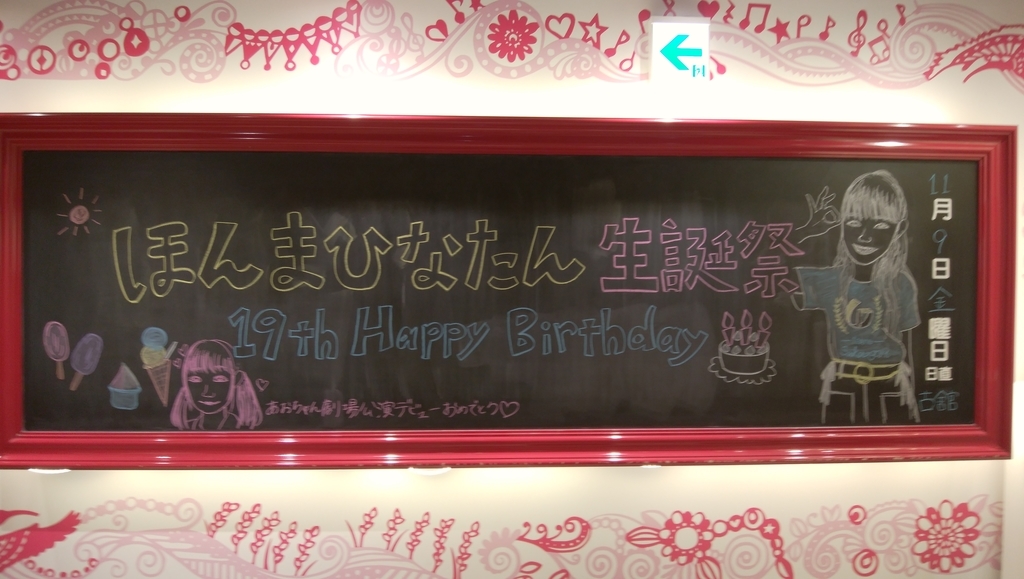 ほんまひなたん 生誕祭
19th Happy Birthday
あおちゃん劇場公演デビューおめでとう♡
11月9日金曜日
日直
古舘